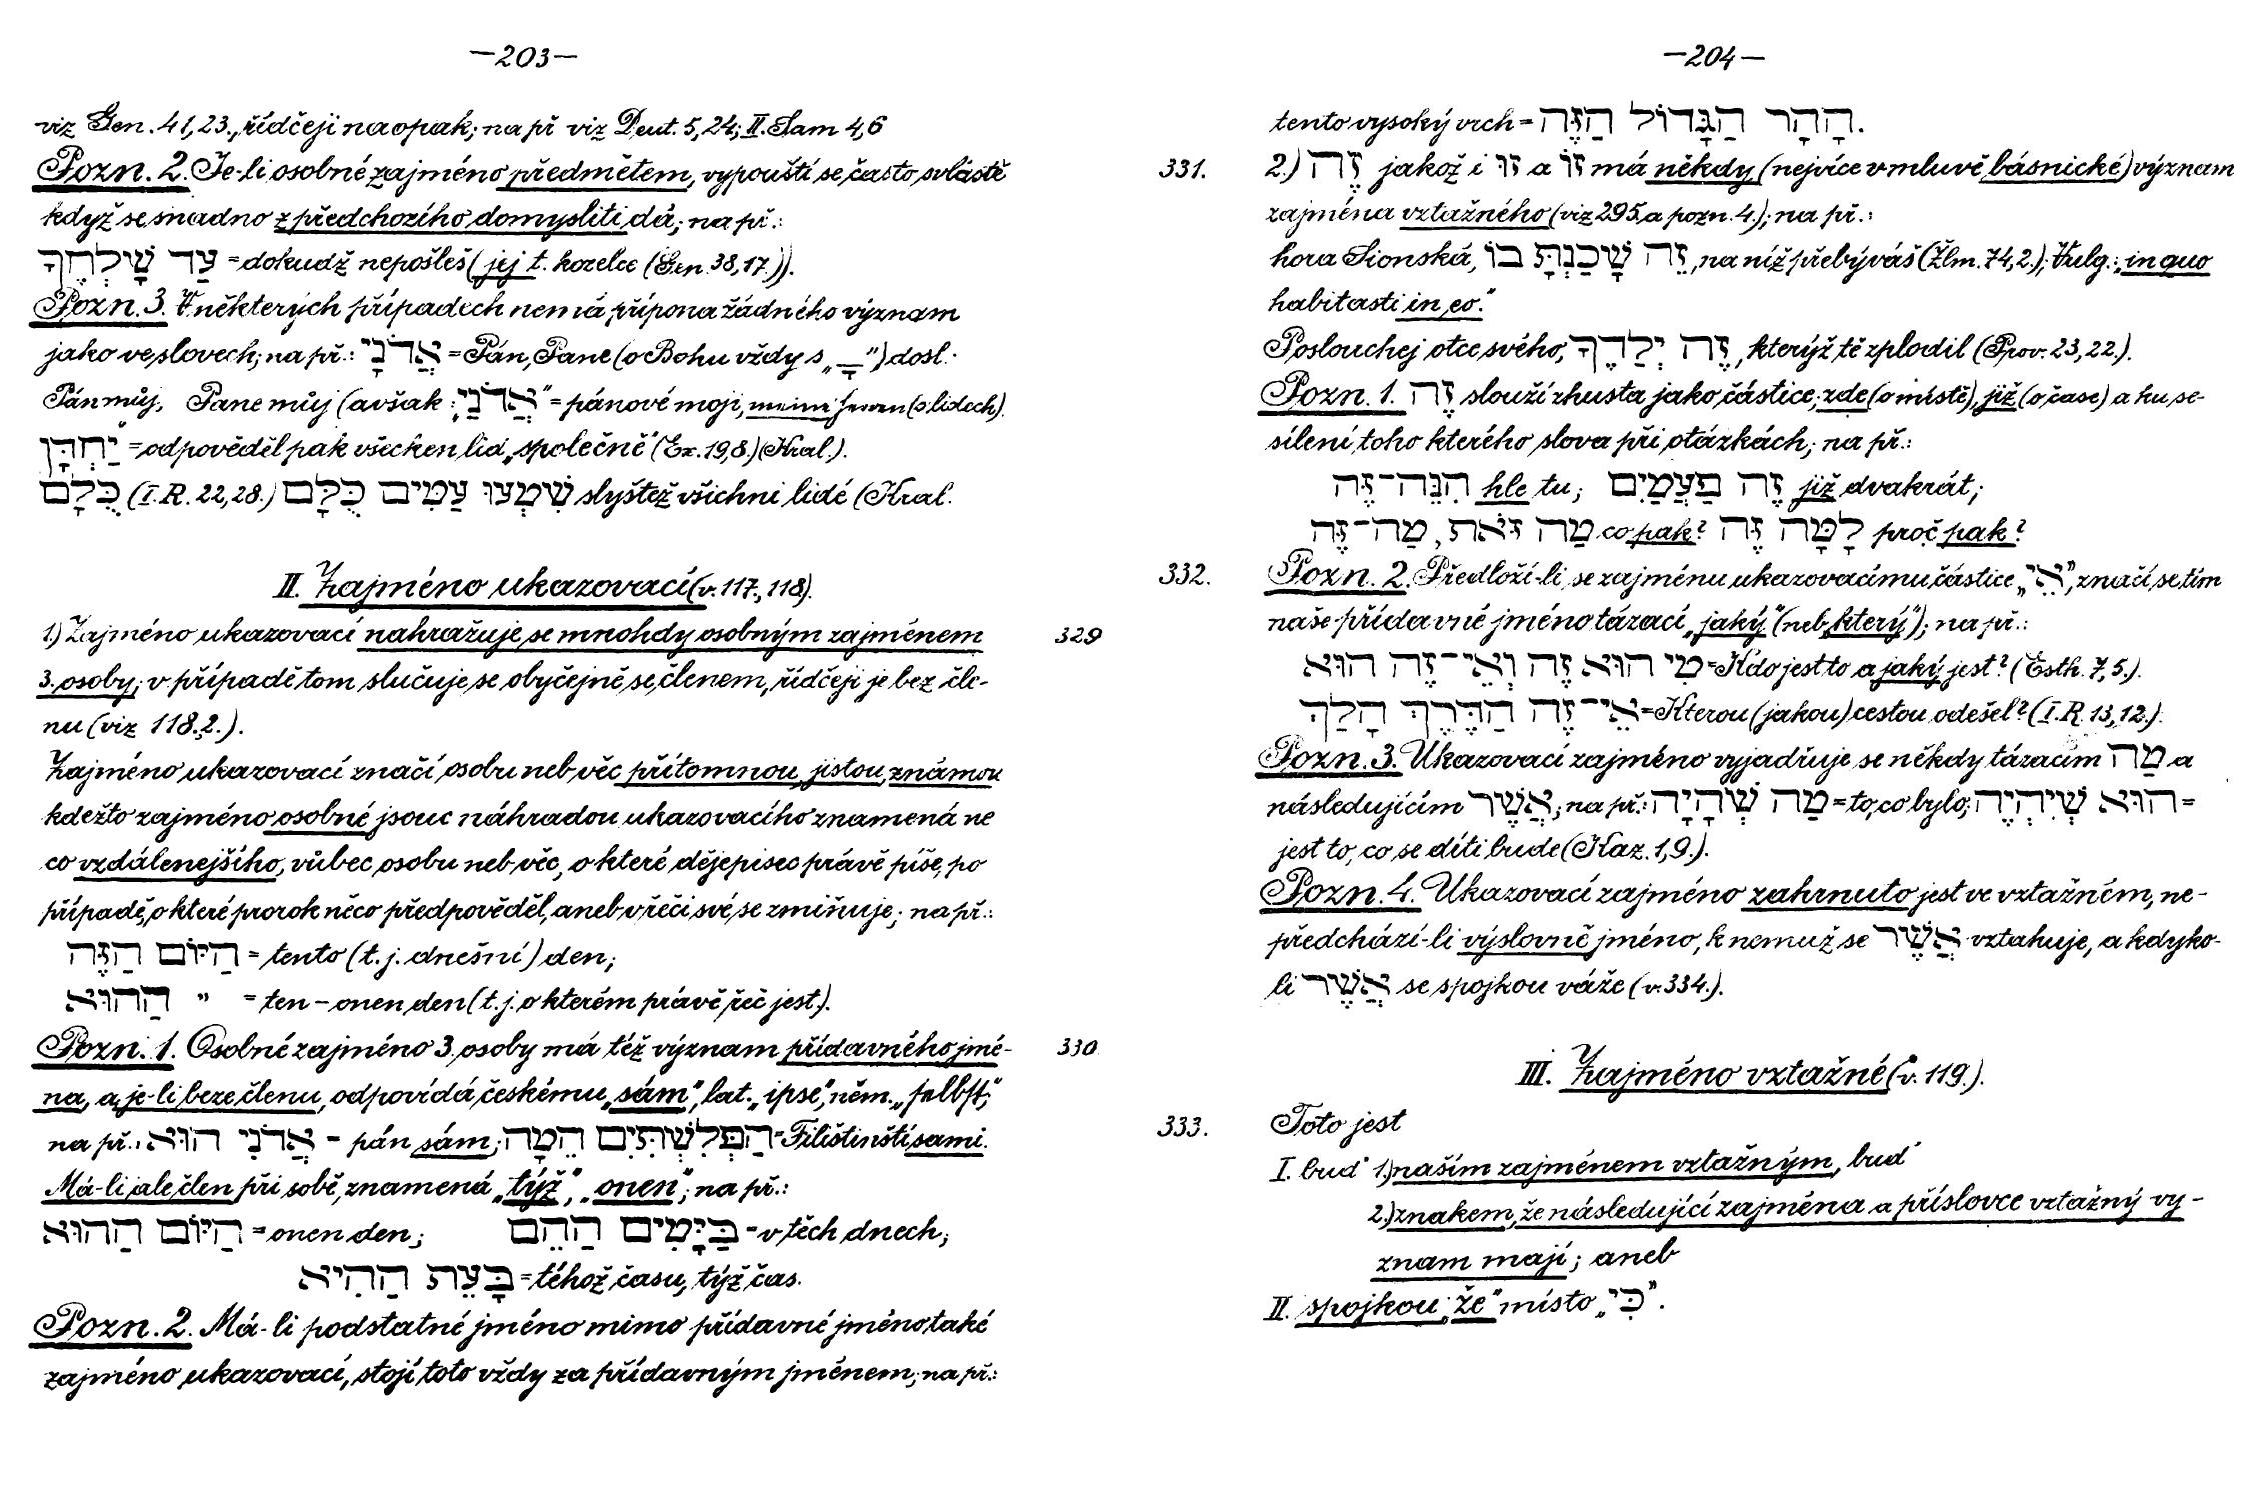 —203—
viz Gen. 41, 23., řídčeji naopak; na př viz Deut. 5, 24; II. Sam 4, 6
Pozn. 2. Je-li osobné zajméno předmětem, vypouští se často svláště
když se snadno z předchozího domysliti dá; na př.:
עַד שָׁלְחֶךָ = dokudž nepošleš (jej t. kozelce (Gen. 38, 17.)).
Pozn. 3. V některých případech nemá přípona žádného význam
jako ve slovech; na př.: אֲדֹנָי = Pán, Pane (o Bohu vždy s „ ָ ") dosl.:
Pán můj, Pane můj (avšak: אֲדֹנַי" = pánové moji, meine Herren (o lidech).
יַחְדָּן = odpověděl pak všecken lid „společně" (Ex. 19, 8.) (Kral.).
כֻּלָּם (I. R. 22, 28.) שִׁמְעוּ עַמִּים כֻּלָּם slyštež všichni lidé (Kral.
II. Zajméno ukazovací (v. 117., 118).
1.) Zajméno ukazovací nahražuje se mnohdy osobným zajménem 329
3. osoby; v případě tom slučuje se obyčejně se členem, řídčeji je bez čle-
nu (viz 118.2.).
Zajméno ukazovací značí osobu neb věc přítomnou, jistou, známou
kdežto zajméno osobné jsouc náhradou ukazovacího znamená ne
co vzdálenejšího, vůbec osobu neb věc, o které dějepisec právě píše, po
případě, o které prorok něco předpověděl, aneb v řeči své se zmiňuje; na př.:
הַיּוֹם הַזֶּה = tento (t. j. dnešní) den;
הַהוּא " = ten – onen den (t. j. o kterém právě řeč jest.).
Pozn. 1. Osobné zajméno 3. osoby má též význam přídavného jmé- 330
na, a je-li beze členu, odpovídá českému „sám", lat. „ipse", něm. „selbst;"
na př.: אֲדֹנִי הוּא – pán sám; הַפְּלִשְׁתִּים הֵמָּה = Filištinští sami.
Má-li ale člen při sobě, znamená „týž", „onen"; na př.:
הַיּוֹם הַהוּא = onen den; בַּיָּמִים הַהֵם = v těch dnech;
בָּעֵת הַהִיא = téhož času, týž čas.
Pozn. 2. Má-li podstatné jméno mimo přídavné jméno také
zajméno ukazovací, stojí toto vždy za přídavným jménem; na př.:
—204—
tento vysoký vrch = הָהָר הַגָּדוֹל הַזֶּה.
331. 2.) זֶה jakož i זוּ a זוֹ má někdy (nejvíce v mluvě básnické) význam
zajména vztažného (viz 295, a pozn. 4.); na př.:
hora Sionská, זֶה שָׁכַנְתָּ בּוֹ, na níž přebýváš (Žlm. 74, 2.); Vulg.: „in quo
habitasti in eo."
Poslouchej otce svého, זֶה יְלָדֶךָ, kterýž tě zplodil (Prov. 23, 22.).
Pozn. 1. זֶה slouží zhusta jako částice, zde (o místě), již (o čase) a ku se-
sílení toho kterého slova při otázkách; na př.:
הִנֵּה־זֶה hle tu; זֶה פַעֲמַיִם již dvakrát;
מַה זֹּאת, מַה־זֶּה co pak? לָמָּה זֶּה proč pak?
332. Pozn. 2. Předloží-li se zajménu ukazovacímu částice „אֵי", značí se tím
naše přídavné jméno tázací „jaký" (neb „který"); na př.:
מִי הוּא זֶה וְאֵי־זֶה הוּא = Kdo jest to a jaký jest? (Esth. 7, 5.).
אֵי־זֶה הַדֶּרֶךְ הָלַךְ = Kterou (jakou) cestou odešel? (I. R. 13, 12.).
Pozn. 3. Ukazovací zajméno vyjadřuje se někdy tázacím מַה a
následujícím אֲשֶׁר; na př.: מַה שֶׁהָיָה = to, co bylo; הוּא שֶׁיִּהְיֶה =
jest to, co se díti bude (Kaz. 1, 9.).
Pozn. 4. Ukazovací zajméno zahrnuto jest ve vztažném, ne-
předchází-li výslovně jméno, k nemuž se אֲשֶׁר vztahuje, a kdyko-
li אֲשֶׁר se spojkou váže (v. 334.).
III. Zajméno vztažné (v. 119.).
333. Toto jest
I. buď 1.) naším zajménem vztažným, buď
2.) znakem, že následující zajména a příslovce vztažný vy-
znam mají; aneb
II. spojkou „že" místo „כִּי".